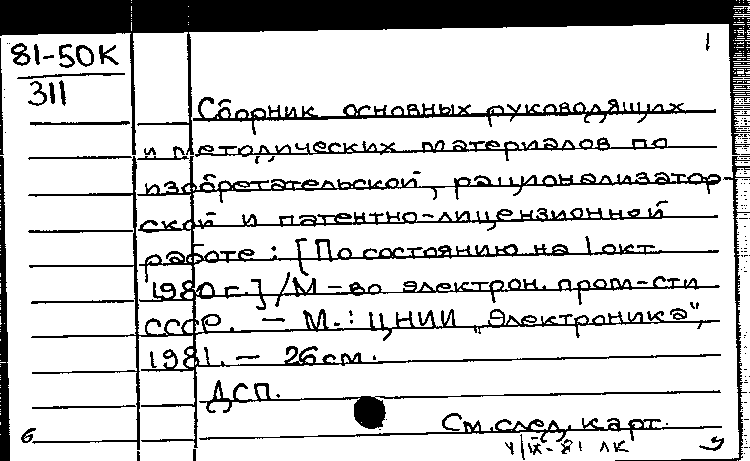 1
81-50К
311
Сборник основных руководящих
и методических материалов по
изобретательской, рационализатор-
ской и патентно-лицензионной
работе : [По состоянию на 1 окт.
1980 г.] / М-во электрон. пром-сти
СССР. — М. : ЦНИИ „Электроника",
1981. — 26 см.
ДСП.
См. след. карт.
б